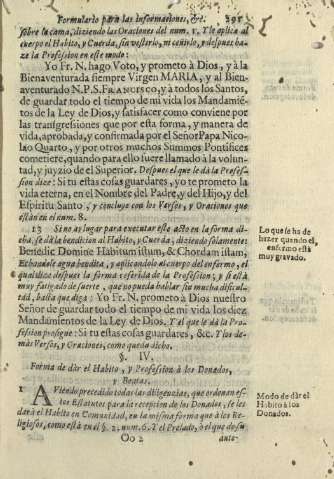 Formulario para las informaciones, &c. 291
sobre la cama, diziendo las Oraciones del num. 1. Y le aplica al
cuerpo el Habito, y Cuerda, sin vestirlo, ni ceñirlo, y despues ha-
ze la Profession en este modo:
Yo Fr. N. hago Voto, y prometo à Dios, y à la
Bienaventurada siempre Virgen MARIA, y al Bien-
aventurado N.P.S. FRANCISCO, y à todos los Santos,
de guardar todo el tiempo de mi vida los Mandamiē-
tos de la Ley de Dios, y satisfacer como conviene por
las transgressiones que por esta forma, y manera de
vida, aprobada, y confirmada por el Señor Papa Nico-
lao Quarto, y por otros muchos Summos Pontifices
cometiere, quando para ello fuere llamado à la volun-
tad, y juyzio de el Superior. Despues el que le dà la Profes-
sion dice: Si tu estas cosas guardares, yo te prometo la
vida eterna, en el Nombre del Padre, y del Hijo, y del
Espiritu Santo, y concluye con los Versos, y Oraciones que
estàn en el num. 8.
13 Si no as lugar para executar este acto en la forma di-
cha, se dà la bendicion al Habito, y Cuerda, diziendo solamente:
Benedic Domine Habitum istum, & Chordam istam,
Echandole agua bendita, y aplicandolo al cuerpo del enfermo, el
qual dice despues la forma referida de la Profession; y se està
muy fatigado de suerte, que no pueda hablar sin mucha dificul-
tad, basta que diga: Yo Fr. N. prometo à Dios nuestro
Señor de guardar todo el tiempo de mi vida los diez
Mandamientos de la Ley de Dios. Y el que le dà la Pro-
fession prosigue: Si tu estas cosas guardares, &c. Y los de-
màs Versos, y Oraciones, como queda dicho.
Lo que se ha de
hazer quando el
enfermo està
muy gravado.
§. IV.
Forma de dàr el Habito, y Profession à los Donados,
y Beatas.
1 AViendo precedido todas las diligencias, que ordenan es-
tos Estatutos para la recepcion de los Donados, se les
darà el Habito en Comunidad, en la misma forma que à los Re-
ligiosos, como està en el §. 2. num. 6. Y el Prelado, ò el que do su
Modo de dàr el
Habito à los
Donados.
Oo 2
auto-